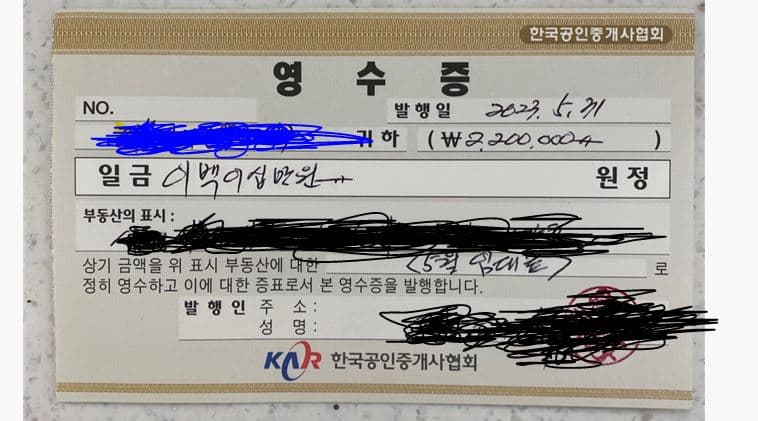 한국공인중개사협회
영 수 증
NO. 발행일 2023. 5. 31
귀하 (₩2,200,000
일금 이백이십만원 원정
부동산의 표시 :
상기 금액을 위 표시 부동산에 대한 (5월 임대료) 로
정히 영수하고 이에 대한 증표로서 본 영수증을 발행합니다.
발행인 주 소 :
성 명 :
KAR 한국공인중개사협회